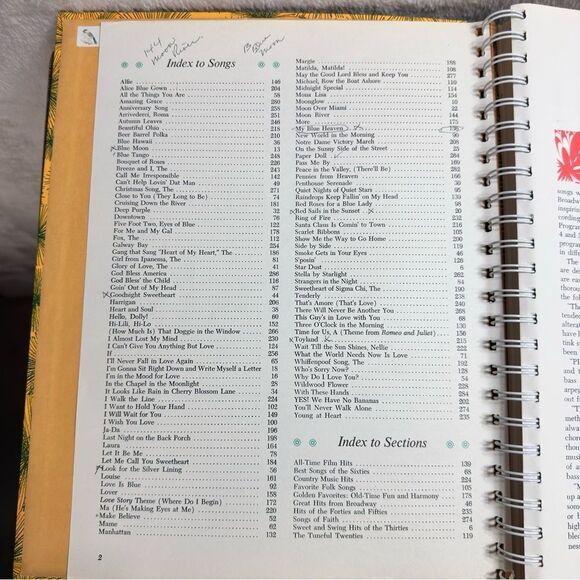 144
Moon
River
13
Blue
Moon
Index to Songs
Alfie 146
Alice Blue Gown 204
All the Things You Are 58
Amazing Grace 280
Anniversary Song 258
Arrivederci, Roma 241
Autumn Leaves 246
Beautiful Ohio 218
Beer Barrel Polka 210
Blue Hawaii 36
x Blue Moon 13
Blue Tango 248
Bouquet of Roses 226
Breeze and I, The 243
Call Me Irresponsible 142
Can't Help Lovin' Dat Man 49
Christmas Song, The 251
Close to You (They Long to Be) 74
Cruising Down the River 181
Deep Purple 32
Downtown 76
Five Foot Two, Eyes of Blue 122
For Me and My Gal 178
Fox, The 112
Galway Bay 254
Gang that Sang "Heart of My Heart," The 186
Girl from Ipanema, The 81
Glory of Love, The 41
God Bless America 286
God Bless' the Child 116
Goin' Out of My Head 87
x Goodnight Sweetheart 44
Harrigan 206
Heart and Soul 38
Hello, Dolly! 60
Hi-Lili, Hi-Lo 152
(How Much Is) That Doggie in the Window 266
I Almost Lost My Mind 230
I Can't Give You Anything But Love 124
If 256
I'll Never Fall in Love Again 65
I'm Gonna Sit Right Down and Write Myself a Letter 18
I'm in the Mood for Love 16
In the Chapel in the Moonlight 28
It Looks Like Rain in Cherry Blossom Lane 214
I Walk the Line 224
I Want to Hold Your Hand 102
I Will Wait for You 149
I Wish You Love 100
Ja-Da 196
Last Night on the Back Porch 198
Laura 164
Let It Be Me 78
Let Me Call You Sweetheart 184
x Look for the Silver Lining 56
Louise 161
Love Is Blue 92
Lover 158
Love Story Theme (Where Do I Begin) 172
Ma (He's Making Eyes at Me) 220
Make Believe 52
Mame 62
Manhattan 132
2
Margie 188
Matilda, Matilda! 108
May the Good Lord Bless and Keep You 277
Michael, Row the Boat Ashore 110
Midnight Special 114
Mona Lisa 154
Moonglow 10
Moon Over Miami 22
Moon River 144
More 175
My Blue Heaven x 136
New World in the Morning 90
Notre Dame Victory March 208
On the Sunny Side of the Street 25
Paper Doll 264
Pass Me By 169
Peace in the Valley, (There'll Be) 282
Pennies from Heaven 166
Penthouse Serenade 30
Quiet Nights of Quiet Stars 95
Raindrops Keep Fallin' on My Head 139
Red Roses for a Blue Lady 98
x Red Sails in the Sunset 20
Ring of Fire 232
Santa Claus Is Comin' to Town 216
Scarlet Ribbons 105
Show Me the Way to Go Home 200
Side by Side 119
Smoke Gets in Your Eyes 46
S'posin' 128
Star Dust 6
Stella by Starlight 262
Strangers in the Night 84
Sweetheart of Sigma Chi, The 190
Tenderly 238
That's Amore (That's Love) 240
There Will Never Be Another You 268
This Guy's in Love with You 68
Three O'Clock in the Morning 130
Tune for Us, A (Theme from Romeo and Juliet) 156
x Toyland 215
Wait Till the Sun Shines, Nellie 222
What the World Needs Now Is Love 71
Whiffenpoof Song, The 192
Who's Sorry Now? 126
Why Do I Love You? 54
Wildwood Flower 228
With These Hands 284
YES! We Have No Bananas 202
You'll Never Walk Alone 274
Young at Heart 235
Index to Sections
All-Time Film Hits 139
Best Songs of the Sixties 68
Country Music Hits 224
Favorite Folk Songs 105
Golden Favorites: Old-Time Fun and Harmony 178
Great Hits from Broadway 46
Hits of the Forties and Fifties 235
Songs of Faith 274
Sweet and Swing Hits of the Thirties 6
The Tuneful Twenties 119